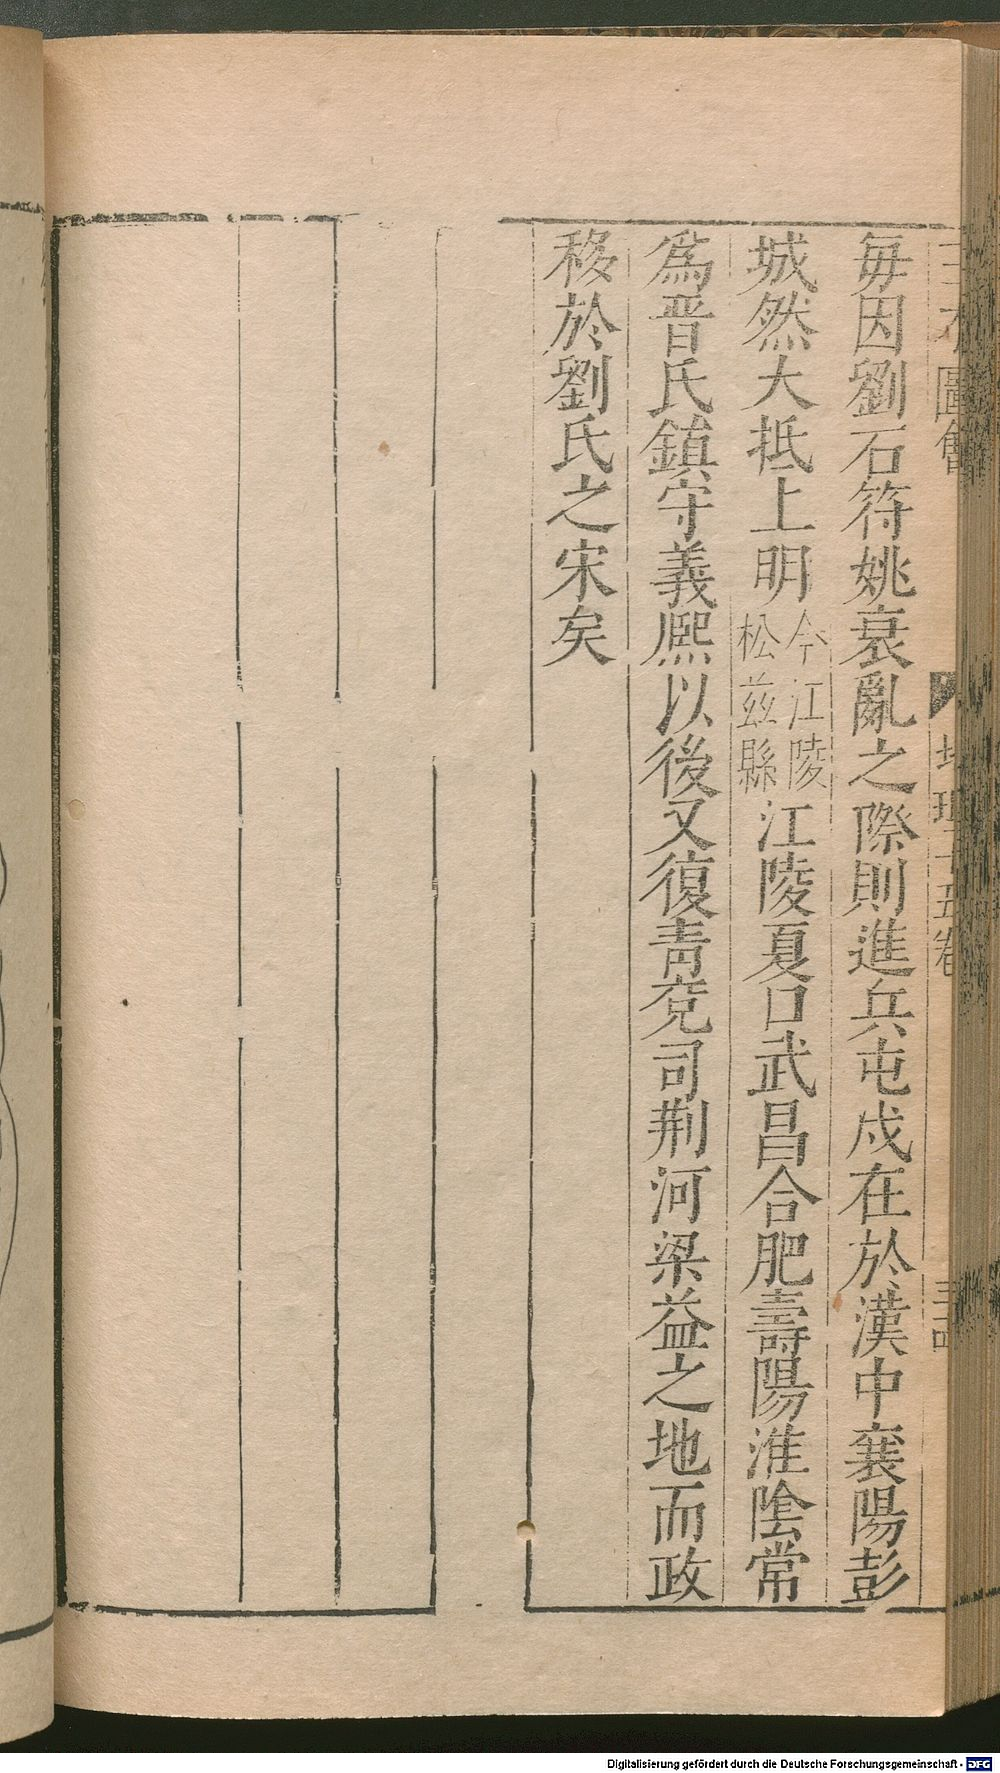 三才圖會 地理十五卷
毎因劉石符姚衰亂之際則進兵屯戍在於漢中襄陽彭
城然大抵上明今江陵松兹縣江陵夏口武昌合肥壽陽淮陰常
爲晋氏鎮守義熈以後又復靑兖司荆河梁益之地而政
移於劉氏之宋矣
Digitalisierung gefördert durch die Deutsche Forschungsgemeinschaft - DFG